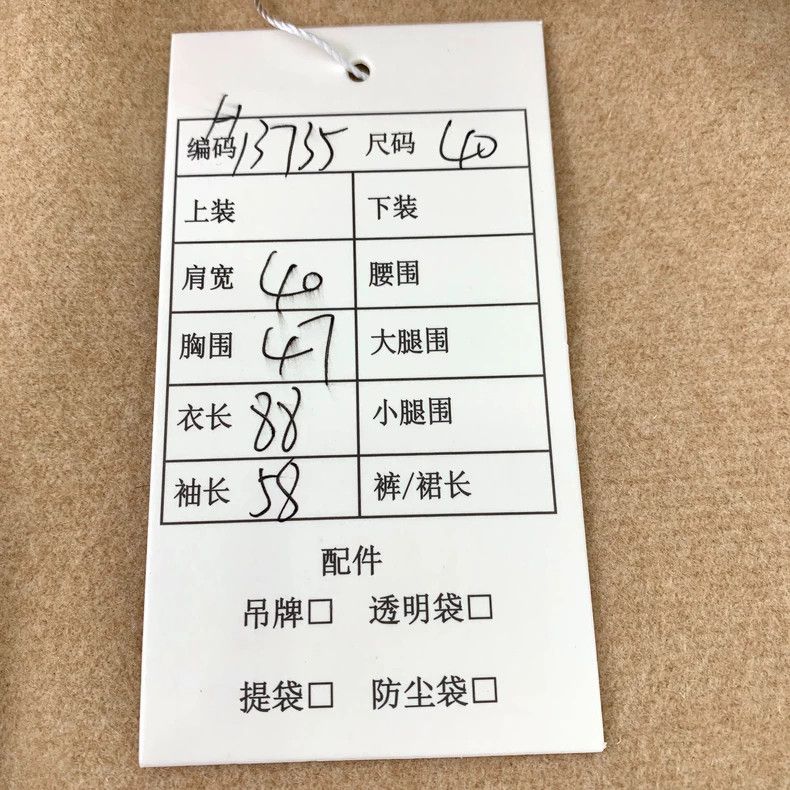 编码 H13735 尺码 40
上装 下装
肩宽 40 腰围
胸围 47 大腿围
衣长 88 小腿围
袖长 58 裤/裙长
配件
吊牌□ 透明袋□
提袋□ 防尘袋□